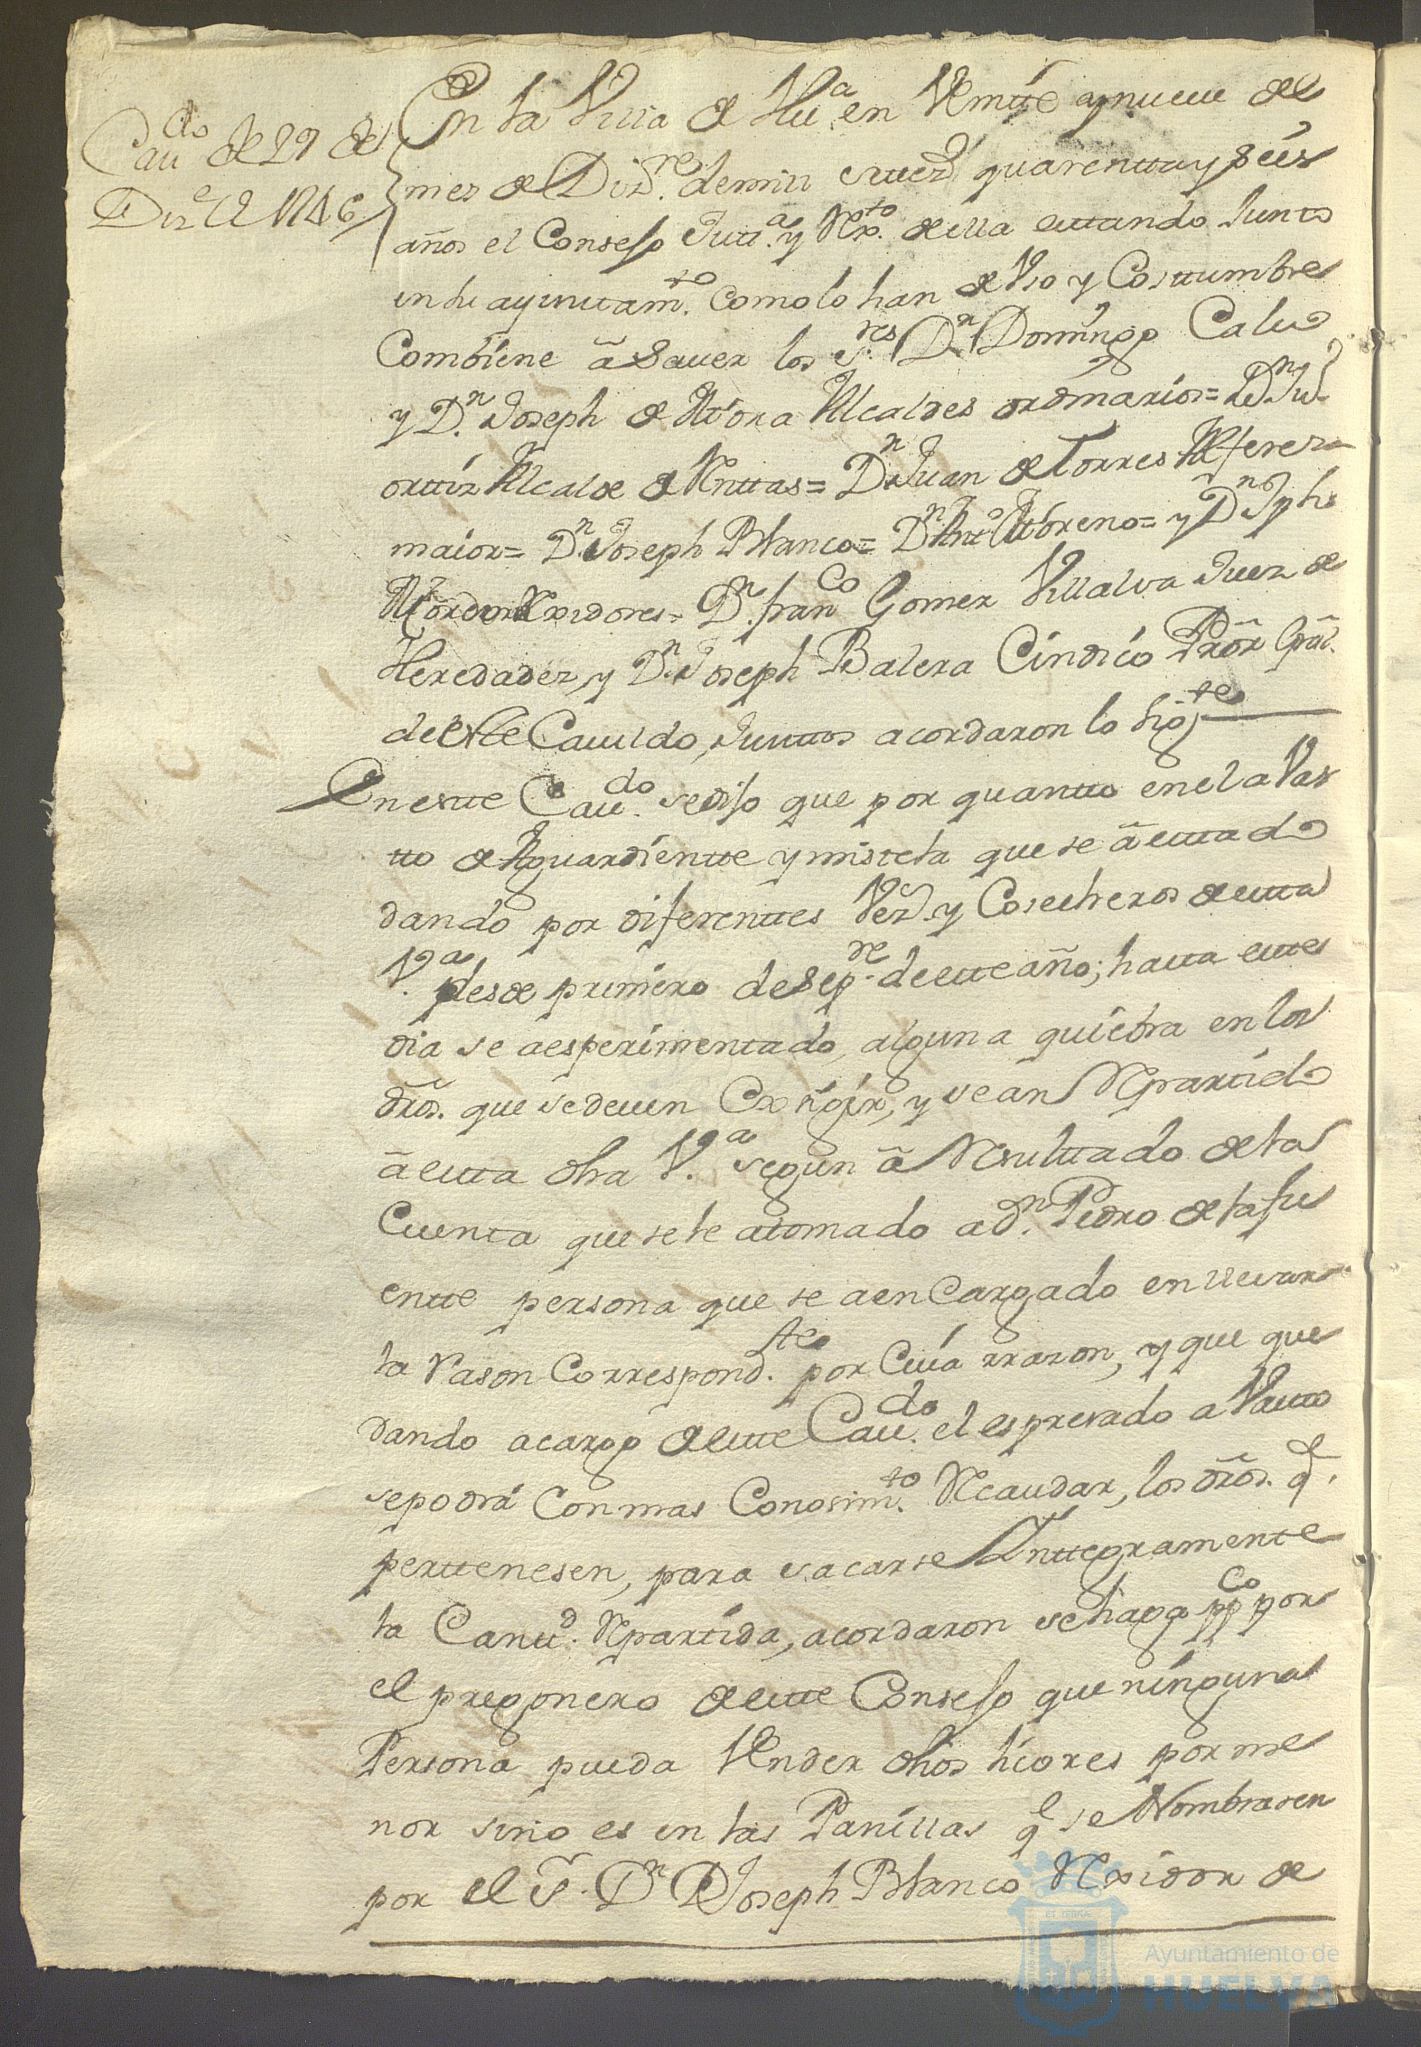 Cau.do de 29 de
Diz.e de 1746
En la Villa de Hu.a en Veintte y nueue del
mes de Diz.re de mill settez.s quarentta y seis
años el Consejo Jutt.a y Rex.to de ella estando Juntos
en su ayuntam.to como lo han de Uso y Costtumbre
Combiene a Sauer los S.res D.n Domingo Caluo
y D.n Joseph de Mora Alcaldes ordinarios = D.n Ju.o
orttiz Alcalde de Renttas = D.n Juan de Torres Alferez
maior = D.n Joseph Blanco = D.n Antt.o Moreno = y D.n Jph
Rexidores = D.n fran.co Gomez Villalva Juez de
Heredades, y D.n Joseph Balera Cindico Pror Gral.
de estte Cauildo, Juntos acordaron lo sig.te
En estte Cau.do se dijo que por quantto en el aVas
tto de Aguardientte y mistela que se a estado
dando por diferenttes Vez.s y Cosecheros de esta
V.a desde primero de Sep.re de este año; hasta este
dia se a esperimentado, alguna quiebra en los
dros. que se deuen Exsigir, y se an Repartido
a esta dha V.a segun a Resulttado de la
Cuenta que se le a tomado a d.n Pedro de la fu
entte persona que se a encargado en lleuar
la Rason Correspond.te por Cuia rrazon, y que que
dando a cargo de este Cau.do el espresado aVasto
se podrá con mas Conosim.to Recaudar, los dros. q.e
perttenesen, para sacarse Inttegramente
la Canti.d Repartida, acordaron se haga pp.co por
el pregonero de este Consejo que ninguna
Persona pueda Vender dhos licores por me
nor sino es en las Panillas q.e se Nombrasen
por el S.r D.n Joseph Blanco Rexidor de
Ayuntamiento de
HUELVA